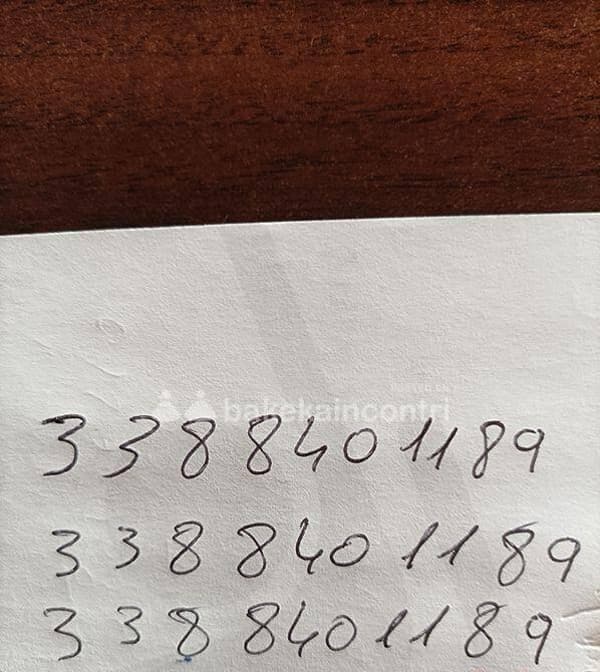 bakekaincontri
338 8401189
338 8401189
338 8401189